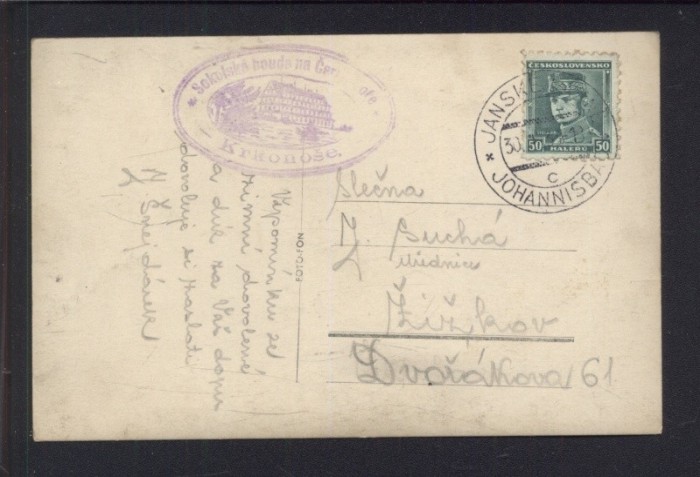 Sokolská bouda na Černé hoře
Krkonoše.
Vzpomínku ze
zimní dovolené
a dík za Váš dopis
dovoluje si zaslati
Z Šnejdárek
FOTO-FON
ČESKOSLOVENSKO
50 HALÉŘŮ 50
JANSK
30.
C
JOHANNISBA
Slečna
Z. Suchá
úřednice
Žižkov
Dvořákova 61